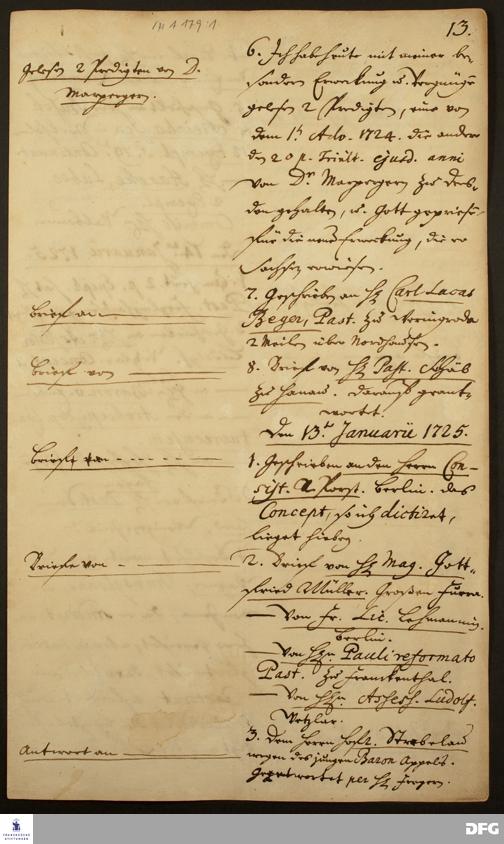 13.
gelesen 2 Predigten von D.
Marpergern.
6. Ich habe heute mit meiner be-
sondern Erweckung u. Vergnügen
gelesen 2 Predigten, eine von
dem 1. Adv. 1724. die andere
den 20 p. Trinit. ejusd. anni
von Dr Marpergern zu Dres-
den gehalten, u. Gott gepriesen
für die neue Erweckung, die er
Sachsen erwiesen.
Brief an
7. Geschrieben an H. Carl Lucas
Beger, Past. zu Werningroda
2 Meilen über Nordhausen.
Brief von
8. Brief von H. Past. Schäb
zu Hanau. darauf geant-
wortet.
Den 13. Januarii 1725.
Brief an
1. Geschrieben an den Herrn Con-
sist. R. Porst. Berlin. das
Concept, so ich dictiret,
lieget hiebey.
Briefe von
2. Brief von H. Mag. Gott-
fried Müller. Großen Furra.
— Von Fr. Lic. Lehmannin.
Berlin.
— Von H. Pauli reformato
Past. zu Franckenthal.
— Von H. Assess. Ludolf.
Wetzlar.
Antwort an
3. Dem Herrn Strebelau
wegen des jungen Baron Appels.
geantwortet per H.
FRANCKESCHE
STIFTUNGEN
DFG